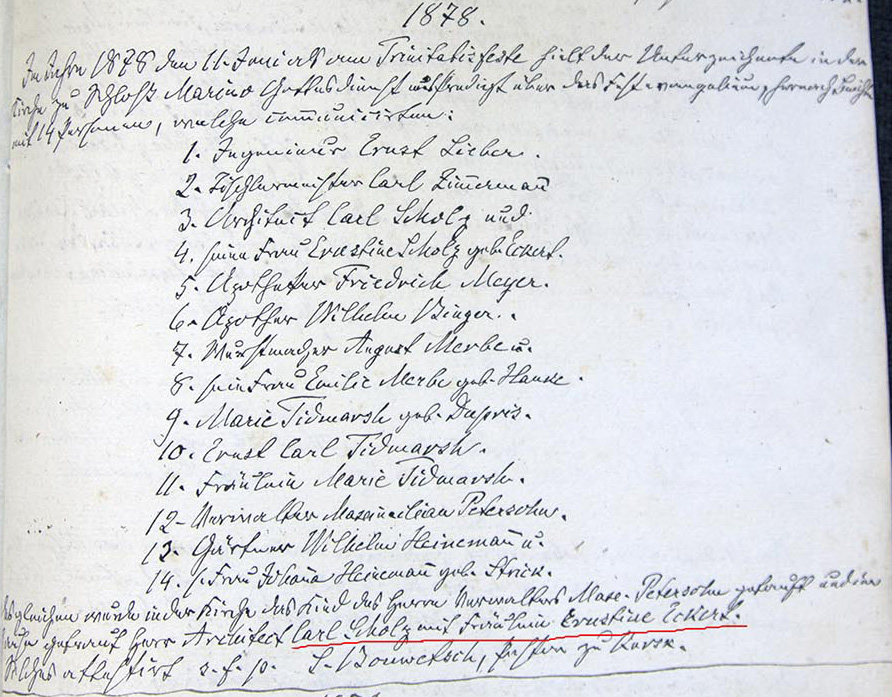 1878.
Im Jahre 1878 den 11. Juni als am Trinitatisfeste hielt der Unterzeichnete in der
Kirche zu Schloß Marino Gottesdienst mit Predigt über das Festevangelium, hernach Beichte
mit 14 Personen, welche communicirten:
1. Ingenieur Ernst Lieber.
2. Tischlermeister Carl Zimmermañ
3. Architect Carl Scholz und
4. seine Frau Ernestine Scholz geb. Eckert.
5. Apotheker Friedrich Meyer.
6. Apotheker Wilhelm Binger.
7. Wurstmacher August Merbe u.
8. sein Frau Emilie Merbe geb. Hanke.
9. Marie Tidmarsh geb. Dupris.
10. Ernst Carl Tidmarsh.
11. Fräulein Marie Tidmarsh.
12. Verwalter Maximilian Petersohn.
13. Gärtner Wilhelm Heinemañ u.
14. s. Frau Johana Heinemañ geb. Strick.
Desgleichen wurde in der Kirche das Kind des Herrn Verwalters Max. Petersohn getauft und in
getraut Herr Architect Carl Scholz mit Fräulein Ernestine Eckert.
Solches attestirt s. f. p. L. Bonwetsch, Pastor zu Kursk.